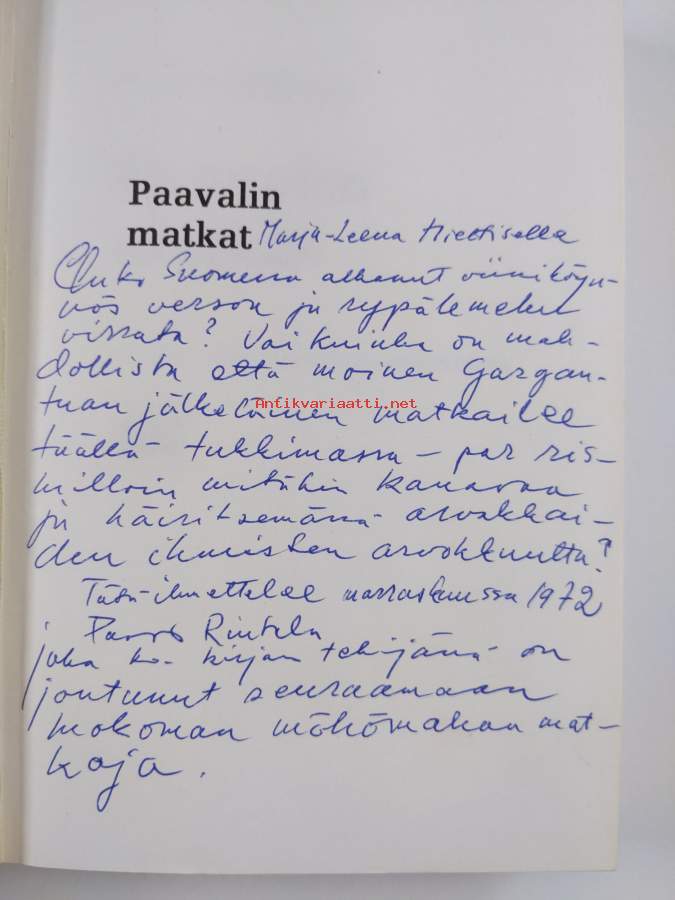 Paavalin
matkat Marja-Leena Miettisella
Onko Suomessa alkanut viiniköyn-
nös versoa ja rypälemehu
virrata? Vai kuinka on mah-
dollista että moinen Gargan-
tuan jälkeläinen matkailee
Antikvariaatti.net
täällä tukkimassa - par ris-
milloin mitäkin kanavaa
ja häiritsemässä arvokkai-
den ihmisten arvokkuutta?
Tätä ihmettelee marraskuussa 1972
Paavo Rintala
joka ko. kirjan tekijänä on
joutunut seuraamaan
mokoman mökömahan mat-
koja.